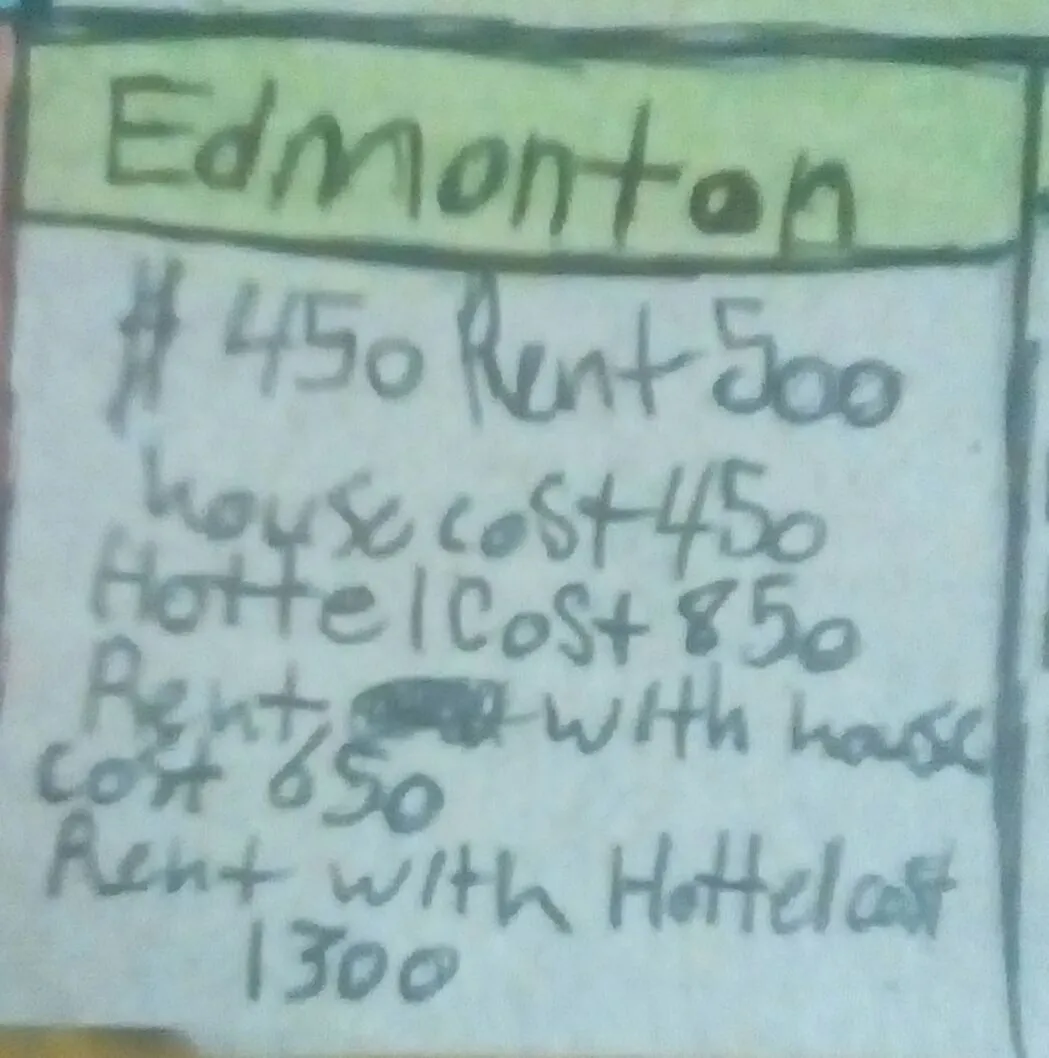 Edmonton
$ 450 Rent 500
house cost 450
Hottel Cost 850
Rent with house
cost 650
Rent with Hottel cost
1300